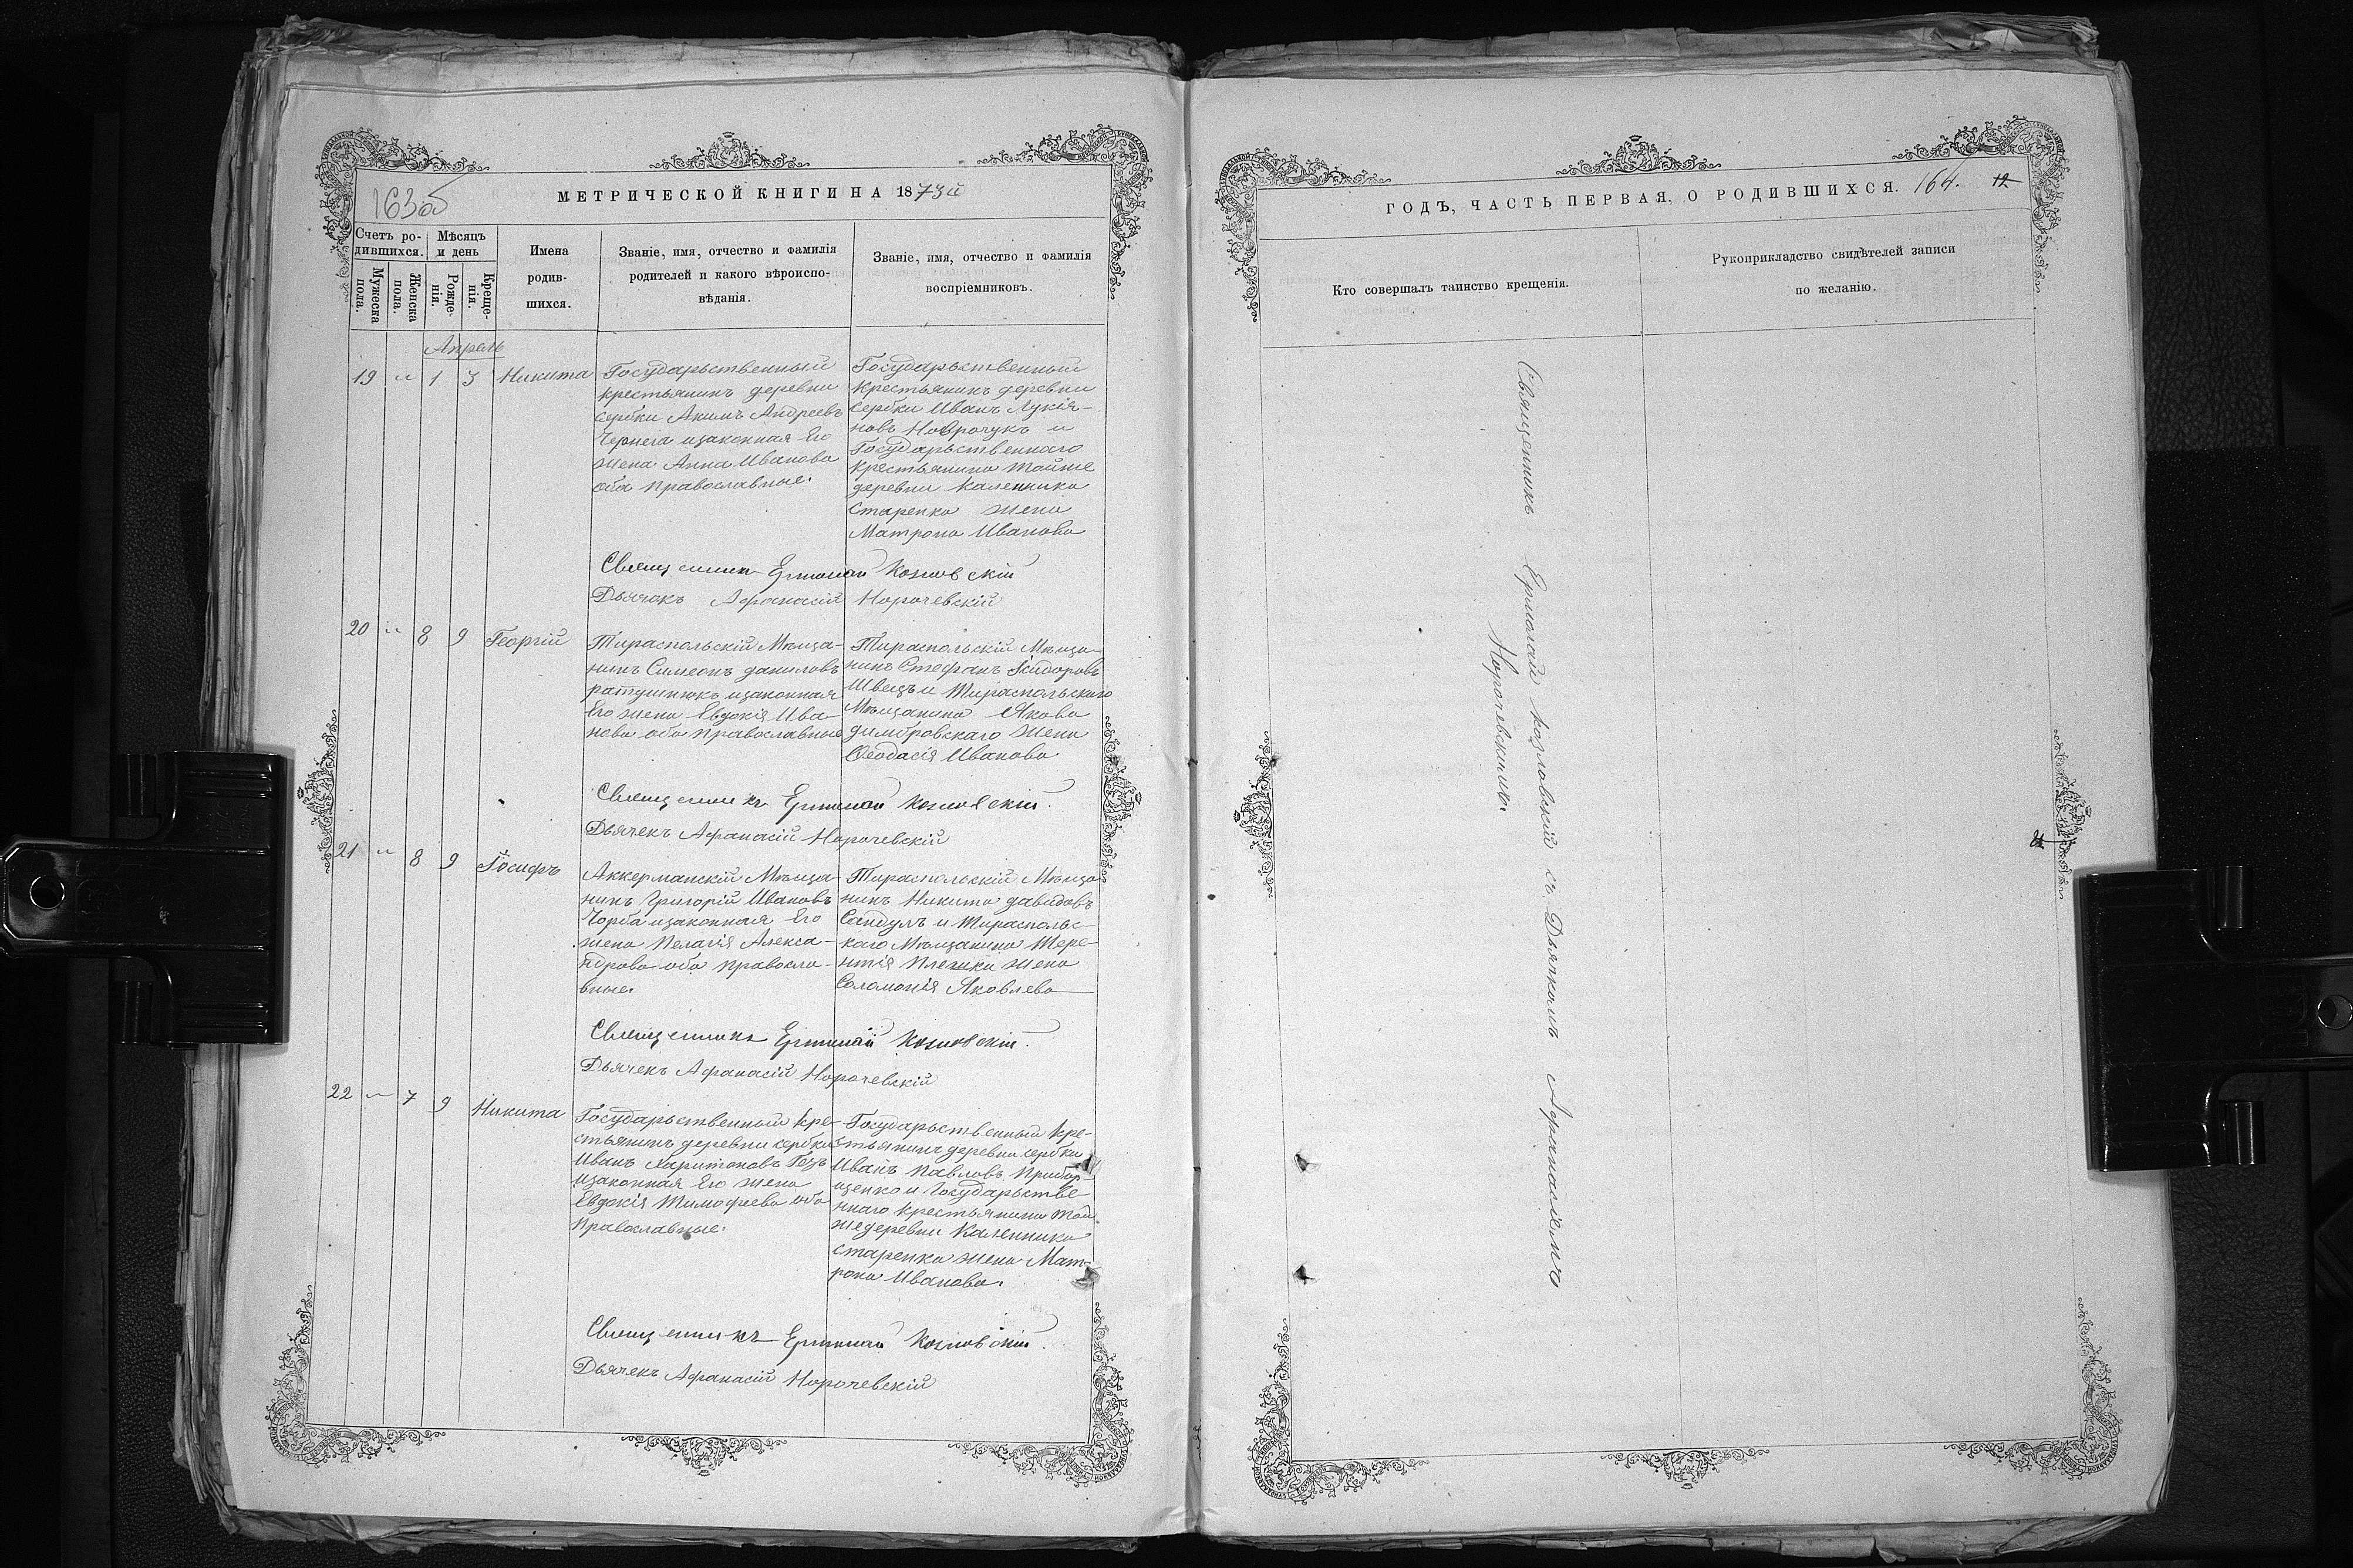 163об
МЕТРИЧЕСКОЙ КНИГИ НА 1873й
Счетъ ро-
дившихся.
Мѣсяцъ
и день
Мужеска
пола.
Женска
пола.
Рожде-
нія.
Креще-
нія.
Имена
родив-
шихся.
Званіе, имя, отчество и фамилія
родителей и какого вѣроиспо-
вѣданія.
Званіе, имя, отчество и фамилія
воспріемниковъ.
Апрель
19 " 1 3 Никита
Государьственный
крестьянинъ деревни
Сербки Акимъ Андреевъ
Чернега изаконная Его
жена Анна Иванова
оба православные.
Государьственный
крестьянинъ деревни
Сербки Иванъ Лукія-
новъ и
Государьственнаго
крестьянина тойже
деревни Каленника
Старенка жена
Матрона Иванова
Священникъ Ермолай Козловскій
Дьячокъ Афанасій Норочевскій
20 " 8 9 Георгій
Тираспольскій Мѣща-
нинъ Симеонъ даниловъ
ратушнюкъ изаконная
Его жена Евдокія Ива-
нова оба православные
Тираспольскій Мѣща-
нинъ Стефанъ Ісидоровъ
Швецъ и Тираспольскаго
Мѣщанина Якова
димбровскаго жена
Ѳеодасія Иванова
Священникъ Ермолай Козловскій.
Дьячекъ Афанасій Норочевскій
21 " 8 9 Іосифъ
Аккерманскій Мѣща-
нинъ Григорій Ивановъ
Чорба изаконная Его
жена Пелагія Алекса-
ндрова оба правосла-
вные.
Тираспольскій Мѣща-
нинъ Никита давидовъ
Сандулъ и Тираспольс-
каго Мѣщанина Тере-
нтія жена
Соломонія Яковлева
Священникъ Ермолай Козловскій.
Дьячекъ Афанасій Норочевскій
22 " 7 9 Никита
Государьственный кре-
стьянинъ деревни сербки
Иванъ Харитоновъ
изаконная Его жена
Евдокія Тимофеева оба
Православные.
Государьственный кре-
стьянинъ деревни сербки
Иванъ Павловъ
и Государьстве-
ннаго крестьянина той
же деревни Каленника
старенка жена Мат-
рона Иванова.
Священникъ Ермолай Козловскій.
Дьячекъ Афанасій Норочевскій
ГОДЪ, ЧАСТЬ ПЕРВАЯ, О РОДИВШИХСЯ. 164. 12
Кто совершалъ таинство крещенія.
Рукоприкладство свидѣтелей записи
по желанію.
Священникъ Ермолай Козловскій съ Дьячкомъ Афанасіемъ
Норочевскимъ.